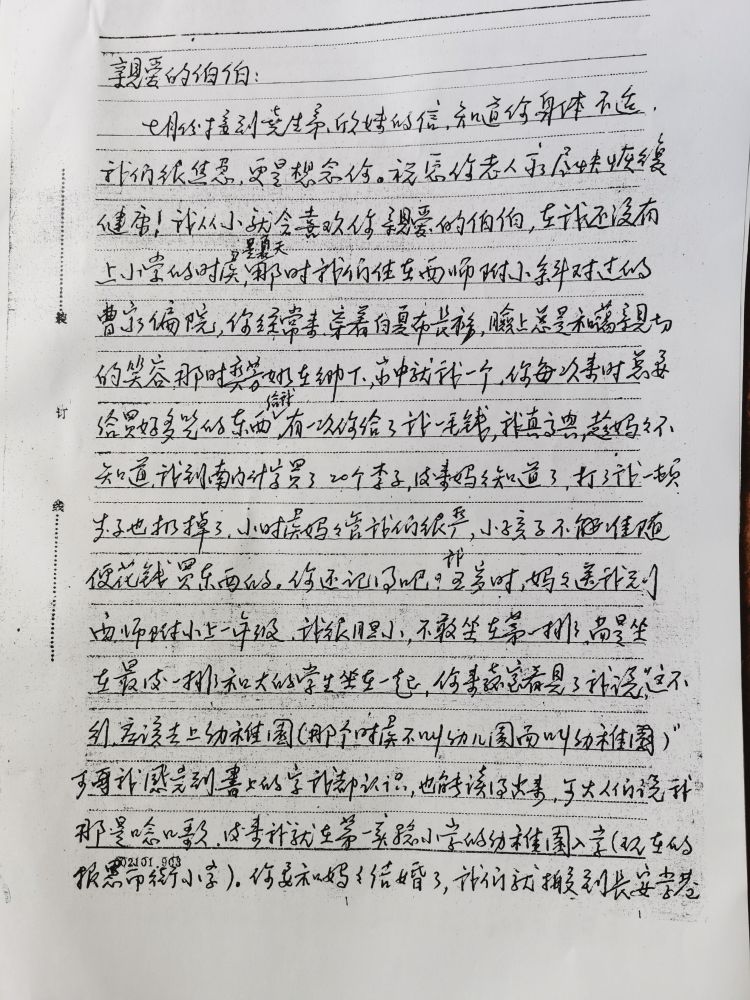 親爱的伯伯：
七月份接到尭生弟、欣妹的信，知道你身体不适，
我们很焦急，更是想念你。祝愿你老人家尽快恢復
健康！我从小就会喜欢你親爱的伯伯，在我还没有
是夏天
上小学的时侯，那时我们住在西师附小斜对过的
曹家偏院，你经常来，穿着白夏布長衫，臉上总是和藹親切
的笑容，那时 在 下，家中就我一个，你每次来时总要
给我
给買好多吃的东西，有一次你给了我一毛钱，我真高興，趁妈々不
知道，我到南门什字買了20个李子，後来妈々知道了，打了我一顿
李子也扔掉了，小时侯妈々管我们很严，小孩子不能随
便花钱買东西的。你还记得吧？五岁时，妈々送我到
西师附小上一年级，我很胆小，不敢坐在第一排，而是坐
在最後一排和大的学生坐在一起，你来 看見了我说，“这不
行，应该去上幼稚園（那个时侯不叫幼儿園而叫幼稚園）”
可再我感觉到書上的字我都认识，也能读得出来，可大人们说我
那是唸口歌，後来我就在第一实验小学的幼稚園入学（现在的
报恩寺街小学）。你要和妈々结婚了，我们就搬到長安学巷
装
订
线